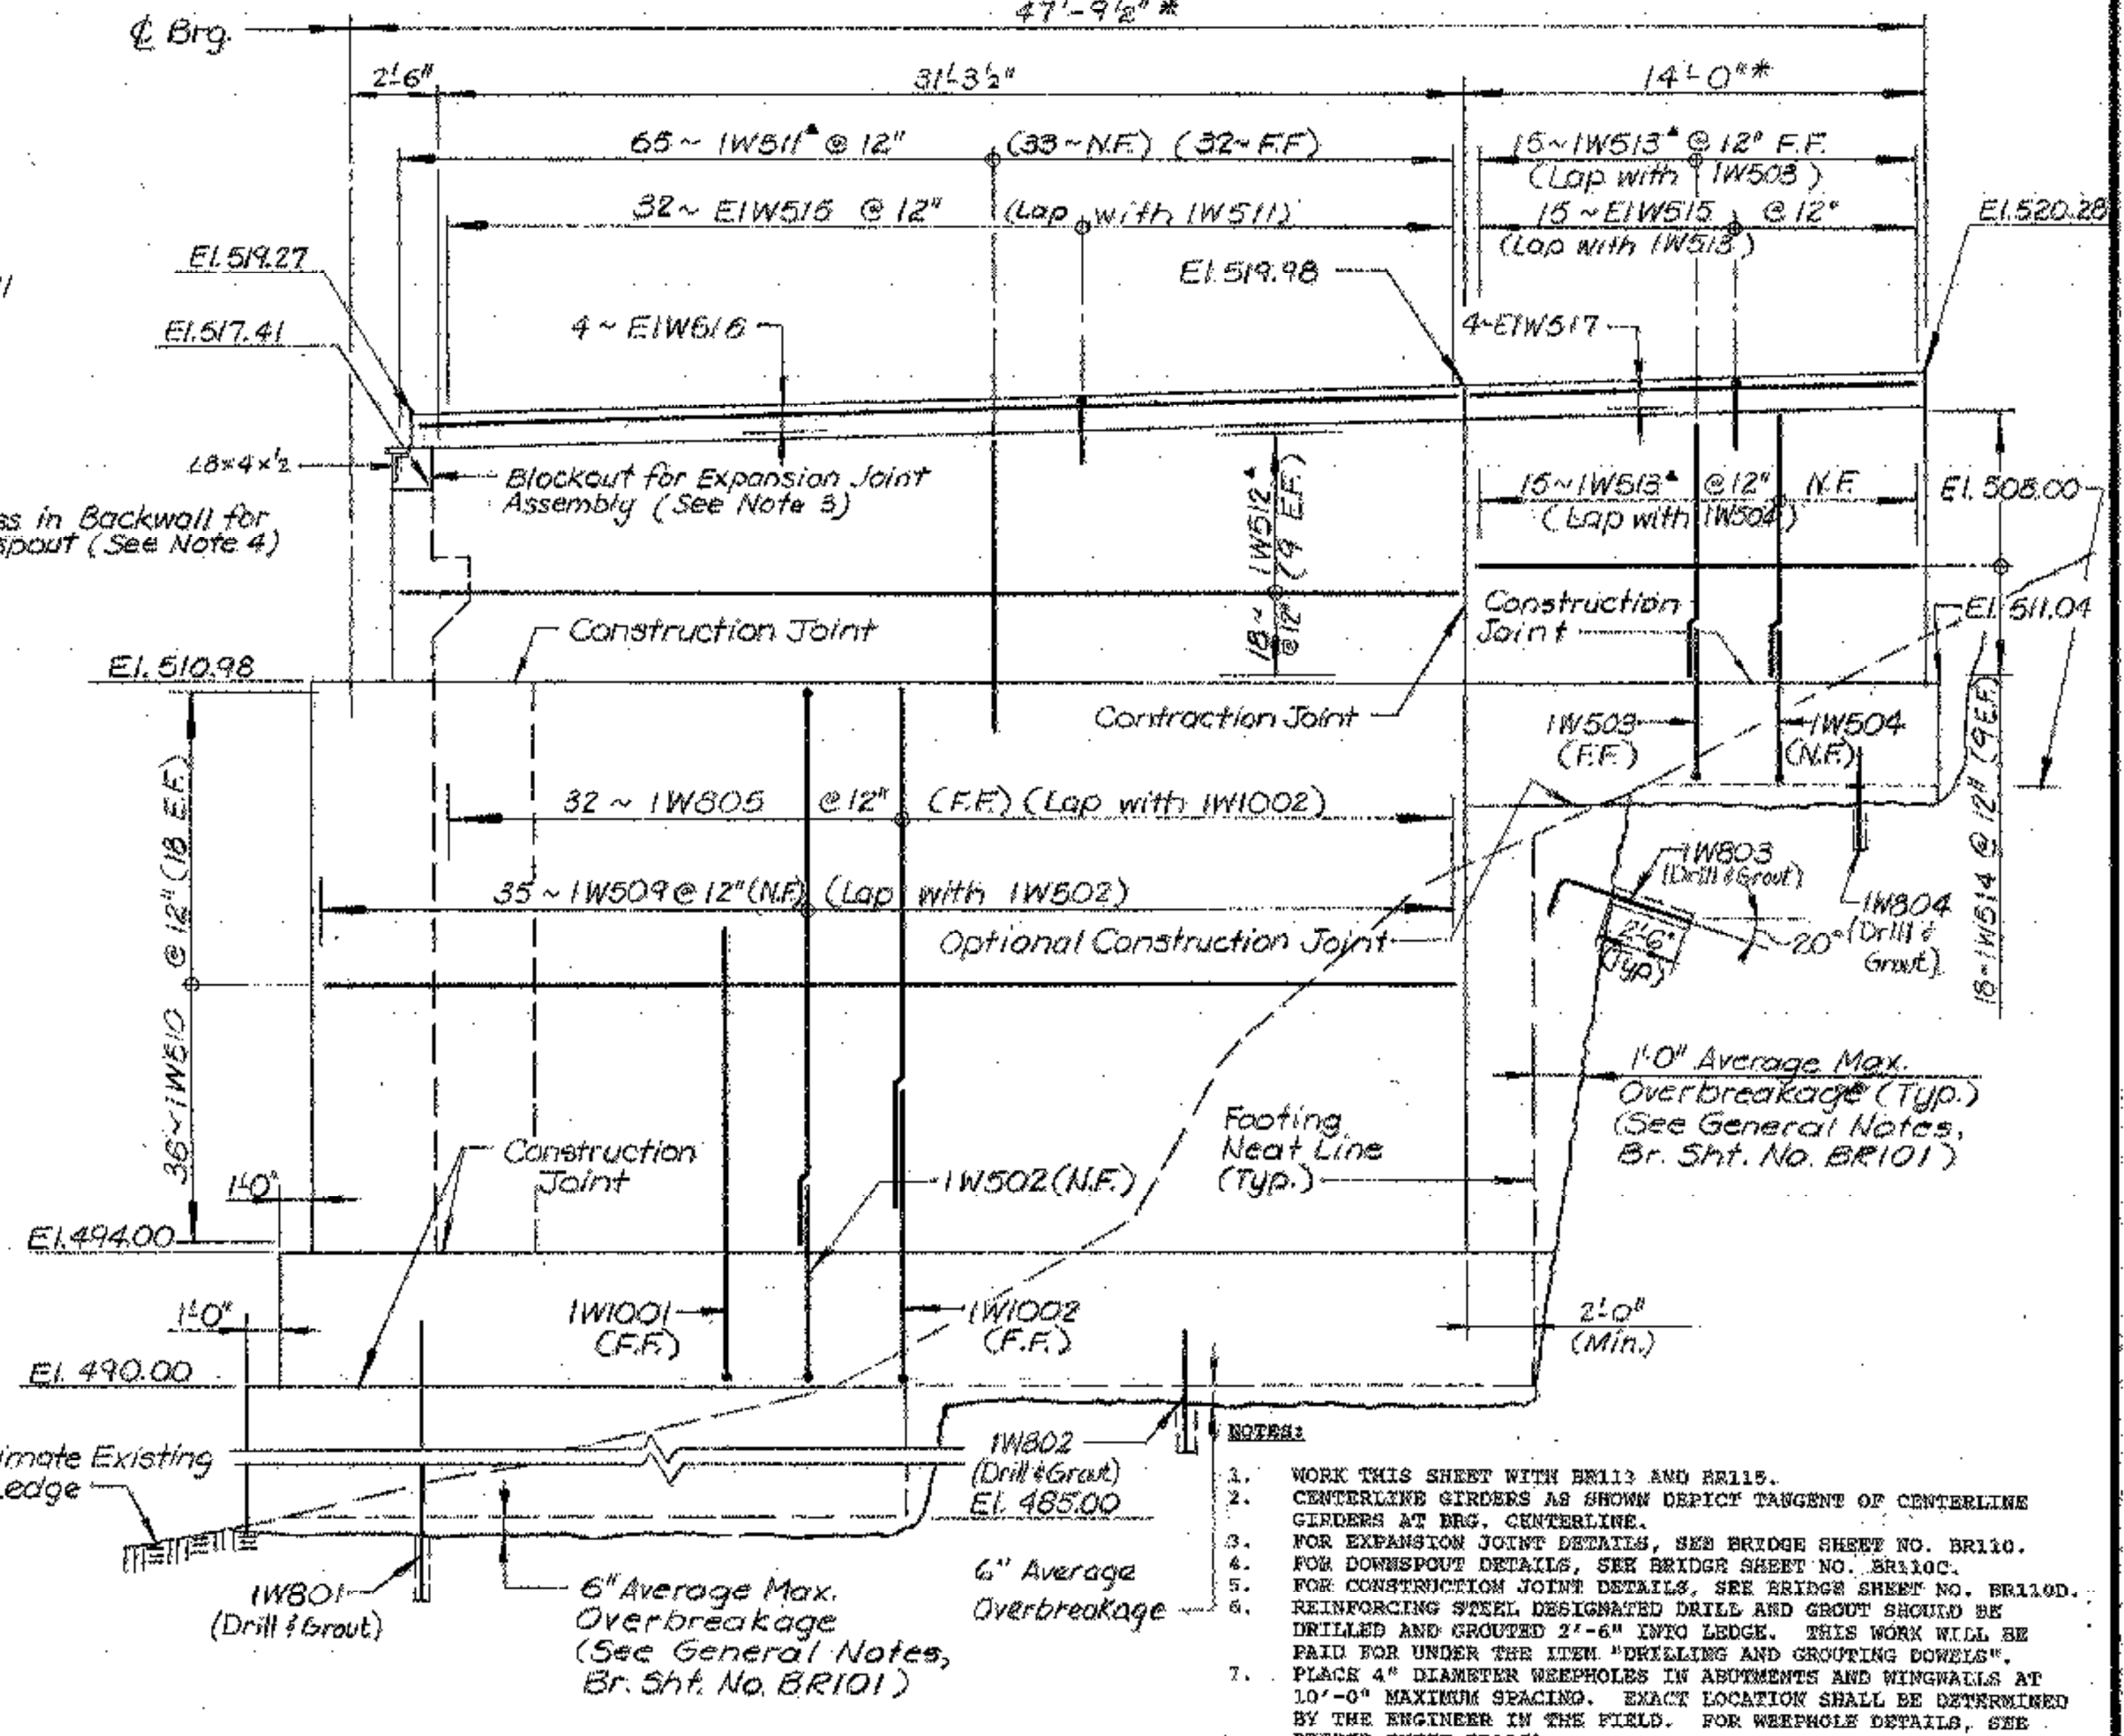 47'-9½" *
℄ Brg.
2'-6"
31'-3½"
14'-0"*
65~ 1W511▲ @ 12" (33~N.F.) (32~F.F.)
15~1W513▲ @ 12" F.F.
(Lap with 1W503)
32~ E1W515 @ 12" (Lap with 1W511)
15~E1W515 @ 12"
(Lap with 1W513)
El. 520.28
El. 519.27
El. 519.98
El. 517.41
4~ E1W516
4~E1W517
L8×4×½
Blockout for Expansion Joint
Assembly (See Note 3)
in Backwall for
spout (See Note 4)
18~ 1W512▲
@ 12" (9 E.F.)
15~1W513▲ @ 12" N.F.
(Lap with 1W504)
El. 508.00
Construction
Joint
El. 511.04
Construction Joint
El. 510.98
Contraction Joint
1W503
(F.F.)
1W504
(N.F.)
36~1W510 @ 12" (18 E.F.)
32 ~ 1W805 @ 12" (F.F.) (Lap with 1W1002)
18~1W514 @ 12" (9 E.F.)
1W803
(Drill & Grout)
35 ~ 1W509 @ 12" (N.F.) (Lap with 1W502)
1W804
(Drill &
Grout)
Optional Construction Joint
2'-6"
(Typ.)
20°
1'-0" Average Max.
Overbreakage (Typ.)
(See General Notes,
Br. Sht. No. BR101)
Footing
Neat Line
(Typ.)
Construction
Joint
1W502 (N.F.)
1'-0"
El. 494.00
1'-0"
1W1001
(F.F.)
1W1002
(F.F.)
2'-0"
(Min.)
El. 490.00
Existing
1W802
(Drill & Grout)
El. 485.00
1W801
(Drill & Grout)
6" Average Max.
Overbreakage
(See General Notes,
Br. Sht. No. BR101)
6" Average
Overbreakage
NOTES:
1. WORK THIS SHEET WITH BR113 AND BR115.
2. CENTERLINE GIRDERS AS SHOWN DEPICT TANGENT OF CENTERLINE
GIRDERS AT BRG. CENTERLINE.
3. FOR EXPANSION JOINT DETAILS, SEE BRIDGE SHEET NO. BR110.
4. FOR DOWNSPOUT DETAILS, SEE BRIDGE SHEET NO. BR110C.
5. FOR CONSTRUCTION JOINT DETAILS, SEE BRIDGE SHEET NO. BR110D.
6. REINFORCING STEEL DESIGNATED DRILL AND GROUT SHOULD BE
DRILLED AND GROUTED 2'-6" INTO LEDGE. THIS WORK WILL BE
PAID FOR UNDER THE ITEM "DRILLING AND GROUTING DOWELS".
7. PLACE 4" DIAMETER WEEPHOLES IN ABUTMENTS AND WINGWALLS AT
10'-0" MAXIMUM SPACING. EXACT LOCATION SHALL BE DETERMINED
BY THE ENGINEER IN THE FIELD. FOR WEEPHOLE DETAILS, SEE